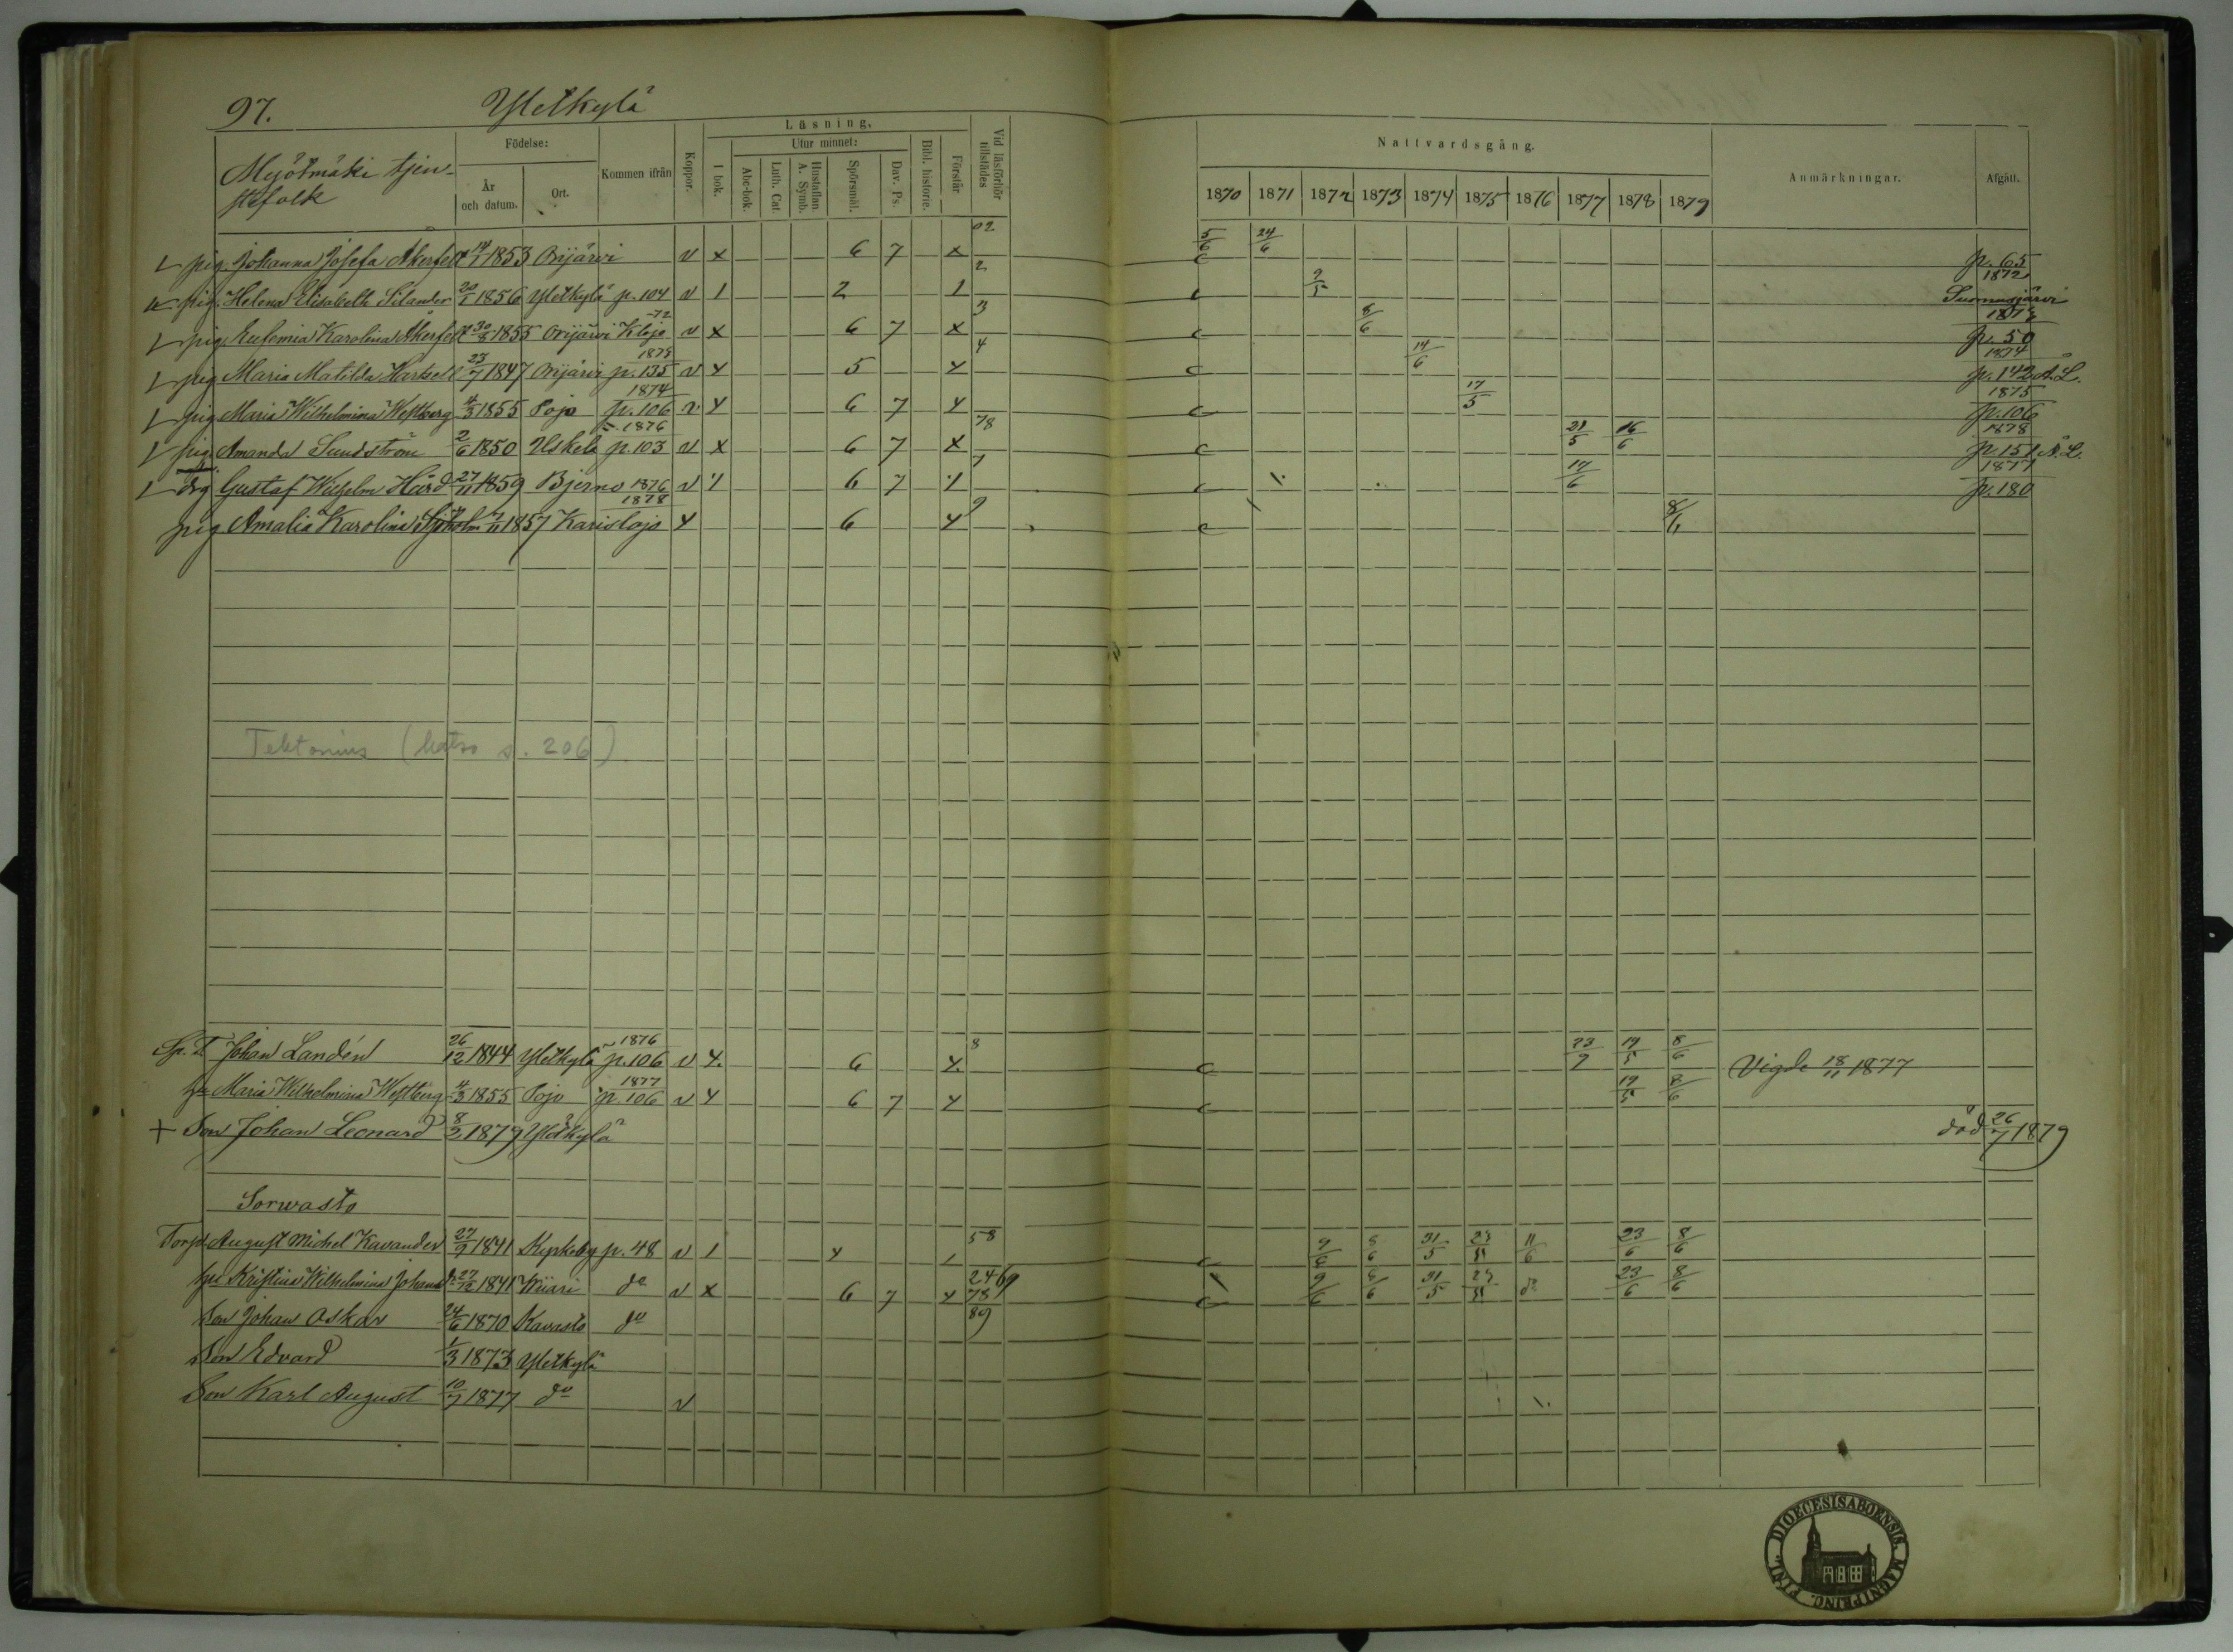 97. Yletkylä
Läsning.
Födelse:
Utur minnet:
Kommen ifrån
Koppor.
I bok.
Abc-bok.
Luth. Cat.
Hustaflan. A. Symb.
Spörsmål.
Dav. Ps.
Bibl. historie.
Förstår
Vid läsförhör tillstädes
År och datum.
Ort.
Nattvardsgång.
Anmärkningar.
Afgått.
1870 1871 1872 1873 1874 1875 1876 1877 1878 1879
tjen-
stefolk
pig. Johanna Josefa Åkerfelt 14/1 1853 Orijärvi v x 6 7 x 02 5/6 24/6 p. 65
1872
pig. Helena Elisabeth Silander 20/1 1856 Yletkylä p. 104 v 1 2 1 2 9/5 Suomusjärvi
-72 1873
pig. Eufemia Karolina Åkerfelt 30/8 1855 Orijärvi Klojo v x 6 7 x 3 8/6 p. 50
1873 1874
pig Maria Matilda 27/7 1847 Orijärvi p. 135 v x 5 x 4 14/6 p. 142 Å.L.
1874 1875
pig Maria Wilhelmina Westberg 4/3 1855 Pojo p. 106 v x 6 7 x 17/5 p. 106
1876 1878
pig Amanda Sundström 2/6 1850 Uskela p. 103 v x 6 7 x 78 21/5 16/6 p. 151 Å.L.
1877
drg Gustaf Wilhelm Hård 27/11 1859 Bjerno 1876 v 1 6 7 1 7 17/6 p. 180
1878
pig Amalia Karolina Sjöholm 1857 Karislojo x 6 x 9 8/6
Tektonius (katso s. 206)
1876
Sp. T. Johan Landén 26/12 1844 Yletkylä p. 106 v x. 6 x. 8 23/9 19/5 8/6 Vigde 18/11 1877
1877
hu Maria Wilhelmina Westberg 4/3 1855 Pojo p. 106 v x 6 7 x 19/5 8/6
+ Son Johan Leonard 8/2 1879 Yletkylä död 26/7 1879
Sorwasto
Torp. August Michel Kavander 27/9 1841 Kipkeby p. 48 v 1 x 1 58 9/6 8/6 31/5 11/6 23/6 8/6
hu Kristina Wilhelmina Johansdr 27/12 1841 Kiiari do v x 6 7 x 2469 78 9/6 8/6 31/5 do 23/6 8/6
Son Johan Oskar 24/6 1870 Kavasto do 89
Son Edvard 1/3 1873 Yletkylä
Son Karl August 10/7 1877 do v
DIOECESIS ABOENSIS. MAGNI PRINC. FINL.